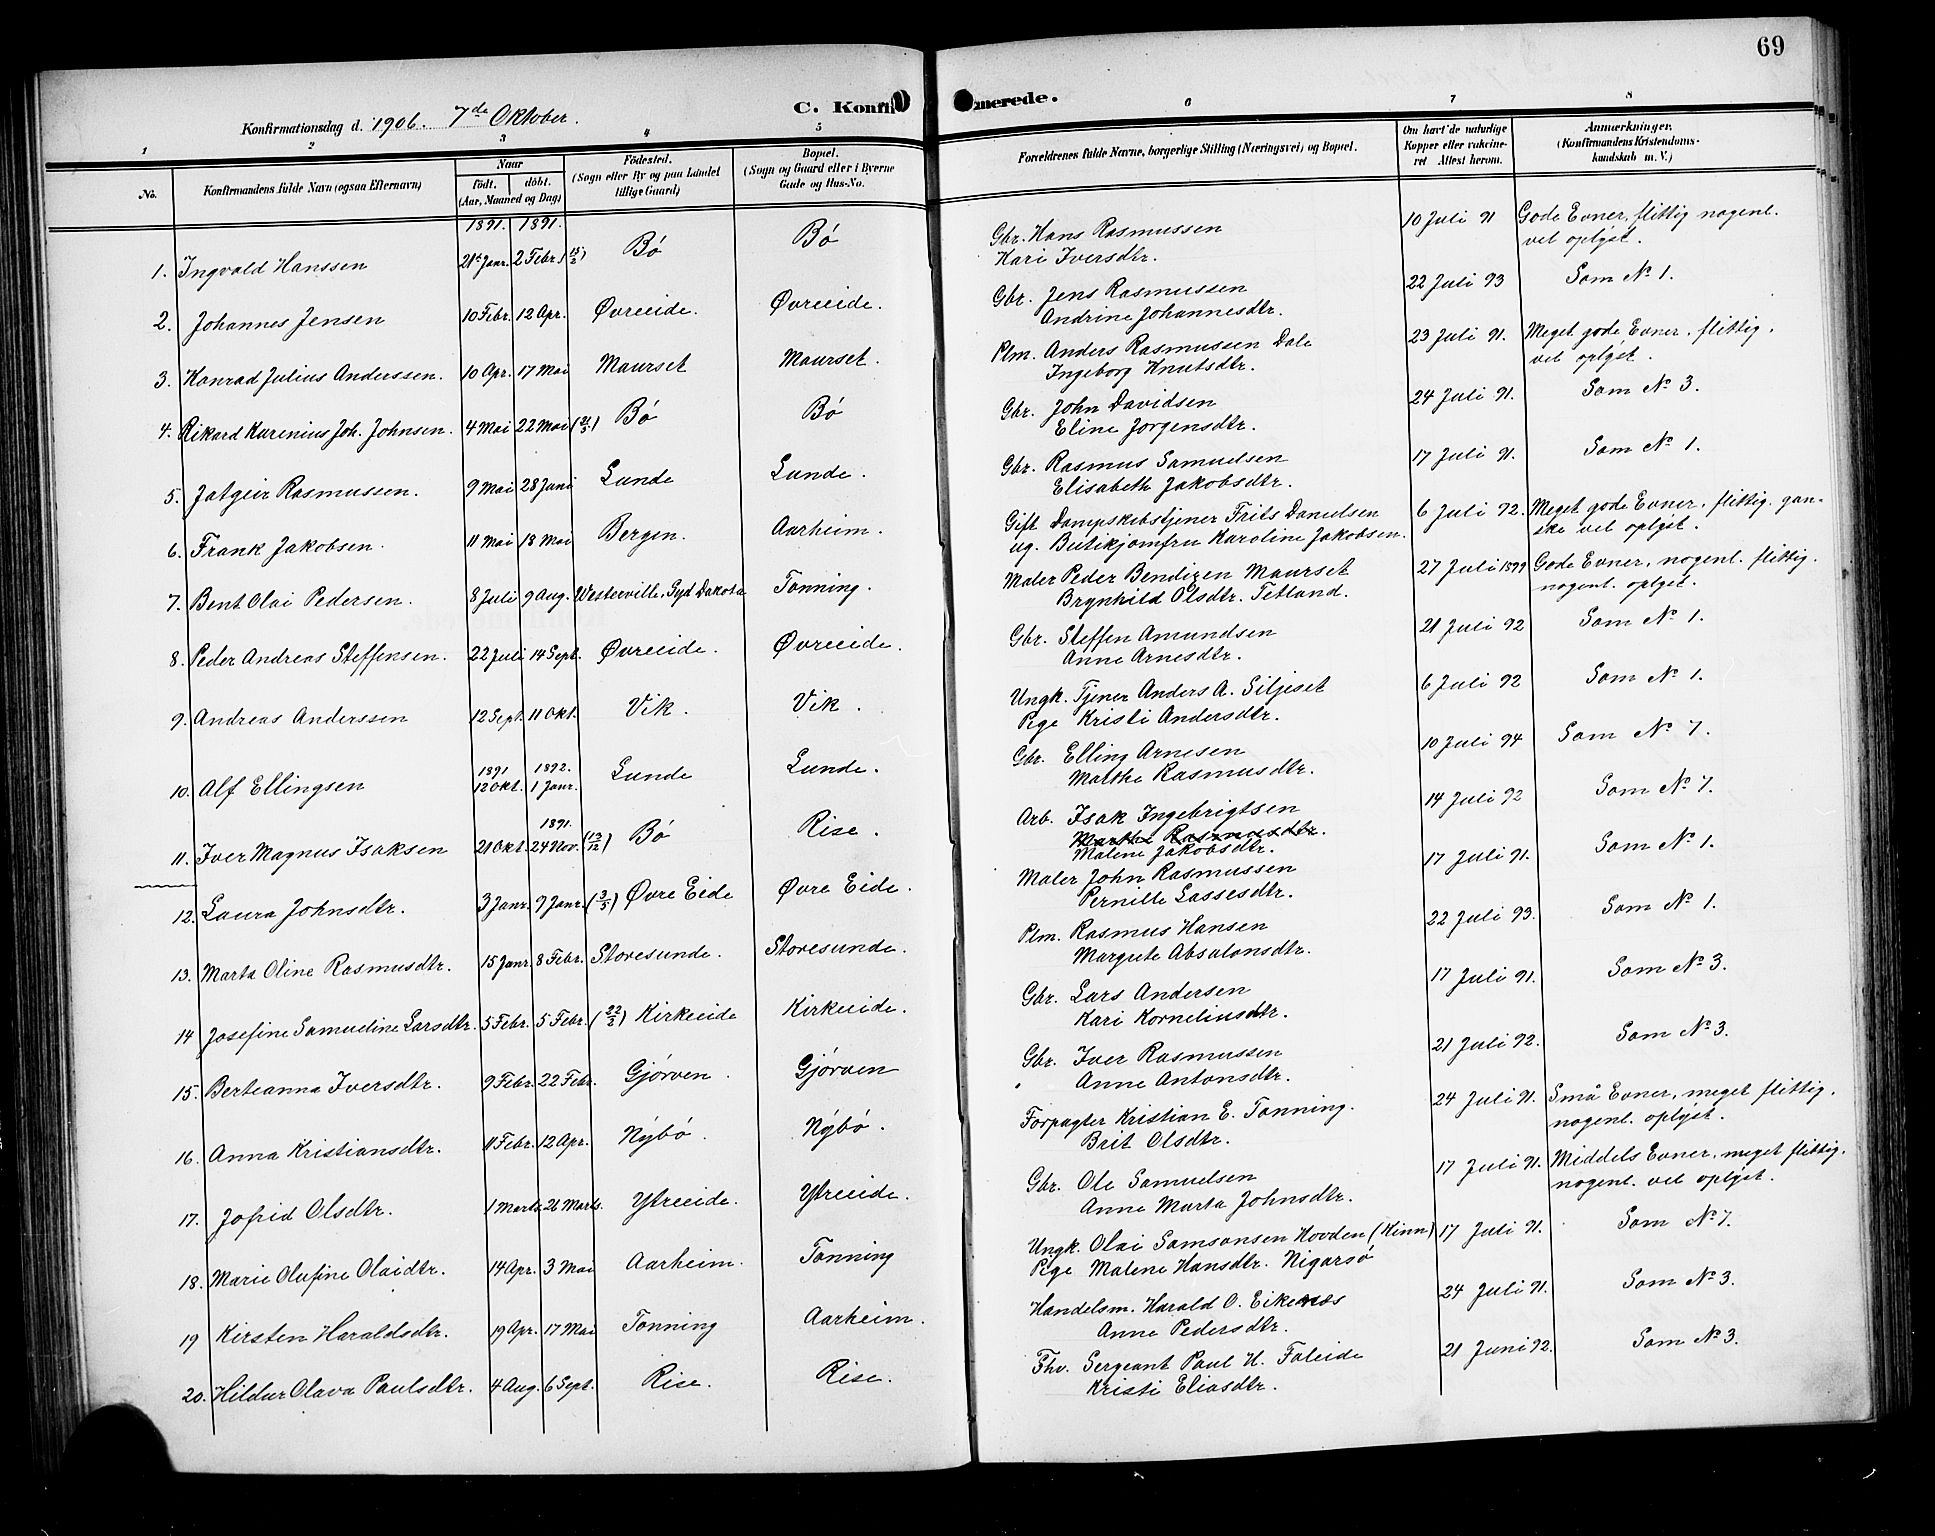 69
C. Konfirmerede.
Konfirmationsdag d. 1906. 7de Oktober.
1 2 3 4 5 6 7 8
No.
Konfirmandens fulde Navn (ogsaa Efternavn)
Naar
födt. döbt.
(Aar, Maaned og Dag)
Födested.
(Sogn eller By og paa Landet
tillige Gaard)
Bopæl.
(Sogn og Gaard eller i Byerne
Gade og Hus-No.
Forældrenes fulde Navne, borgerlige Stilling (Næringsvei) og Bopæl.
Om havt de naturlige
Kopper eller vakcine-
ret Attest herom.
Anmærkninger.
(Konfirmandens Kristendoms-
kundskab m. V.)
1891. 1891.
1. Ingvald Hanssen 21de Janr. 2 Febr. (15/2) Bö Bö Gbr. Hans Rasmussen 10 Juli 91 Gode Evner, flittig nogenl.
Kari Iversdtr. vel oplÿst.
2. Johannes Jensen 10 Febr. 12 Apr. Øvreeide. Øvreeide. Gbr. Jens Rasmussen 22 Juli 93 Som No 1.
Andrine Johannesdtr.
3. Konrad Julius Anderssen. 10 Apr. 17 Mai Maurset Maurset. Plm. Anders Rasmussen Dale 23 Juli 91. Meget gode Evner, flittig,
Ingeborg Knutsdtr. vel oplÿst.
4. Rikard Kurenius Joh. Johnsen. 4 Mai 22 Mai (31/5) Bö Bö Gbr. John Davidsen 24 Juli 91. Som No 3.
Eline Jörgensdtr.
5. Jatgeir Rasmussen. 9 Mai 28 Juni Lunde Lunde. Gbr. Rasmus Samuelsen 17 Juli 91. Som No 1.
Elisabeth Jakobsdtr.
6. Frank Jakobsen. 11 Mai 18 Mai Bergen. Aarheim. Gift Dampskibstjener Frits Danielsen 6 Juli 92. Meget gode Evner, flittig, gan-
ug. Butikjomfru Karoline Jakobsen. ske vel oplÿst.
7. Bent Olai Pedersen. 8 Juli 9 Aug. Westerville, Syd Dakota Tonning. Maler Peder Bendixen Maurset 27 Juli 1899 Gode Evner, nogenl. flittig.
Brynhild Olsdtr. Tetland. nogenl. oplÿst.
8. Peder Andreas Steffensen. 22 Juli 14 Sept. Øvreeide. Øvreeide. Gbr. Steffen Amundsen 21 Juli 92 Som No 1.
Anne Arnesdtr.
9. Andreas Anderssen 12 Sept. 11 Okt. Vik. Vik. Ungk. Tjener Anders A. Siljeset 6 Juli 92 Som No 1.
Pige Kristi Andersdtr.
1891 1892.
10. Alf Ellingsen 12 Okt. 1 Janr. Lunde Lunde. Gbr. Elling Arnesen 10 Juli 94 Som No 7.
Marthe Rasmusdtr.
1891.
11. Iver Magnus Isaksen 21 Okt. 24 Nov. (13/12) Bö Rise. Arb. Isak Ingebrigtsen 14 Juli 92 Som No 7.
Marthe Rasmusdtr.
Malene Jakobsdtr.
12. Laura Johnsdtr. 3 Janr. 9 Janr. (3/5) Øvre Eide Øvre Eide. Maler John Rasmussen 17 Juli 91. Som No 1.
Pernille Lassesdtr.
13. Marta Oline Rasmusdtr. 15 Janr. 8 Febr. Storesunde. Storesunde. Plm. Rasmus Hansen 22 Juli 93. Som No 1.
Margrete Absalonsdtr.
14 Josefine Samueline Larsdtr. 5 Febr. 5 Febr. (22/2) Kirkeeide Kirkeeide. Gbr. Lars Andersen 17 Juli 91. Som No 3.
Kari Korneliusdtr.
15. Berteanna Iversdtr. 9 Febr. 22 Febr. Gjörven. Gjörven Gbr. Iver Rasmussen 21 Juli 92. Som No 3.
Anne Antonsdtr.
16. Anna Kristiansdtr. 11 Febr. 12 Apr. Nÿbö. Nÿbö. Forpagter Kristian E. Tonning. 24 Juli 91. Små Evner, meget flittig,
Brit Olsdtr. nogenl. oplÿst.
17. Jofrid Olsdtr. 1 Marts 26 Marts. Ytreeide. Ytreeide. Gbr. Ole Samuelsen 17 Juli 91. Middels Evner, meget flittig,
Anne Marta Johnsdtr. nogenl. vel oplÿst.
18. Marie Olufine Olaidtr. 14 Apr. 3 Mai Aarheim. Tonning Ungk. Olai Samsonsen Hovden (Kinn) 17 Juli 91. Som No 7.
Pige Malene Hansdtr. Nigarsö
19 Kirsten Haraldsdtr. 19 Apr. 17 Mai Tonning Aarheim. Handelsm. Harald O. Eikenæs 24 Juli 91. Som No 3.
Anne Pedersdtr.
20. Hildur Olava Paulsdtr. 4 Aug. 6 Sept. Rise. Rise. Fhv. Sergeant Paul H. Faleide 21 Juni 92. Som No 3.
Kristi Eliasdtr.